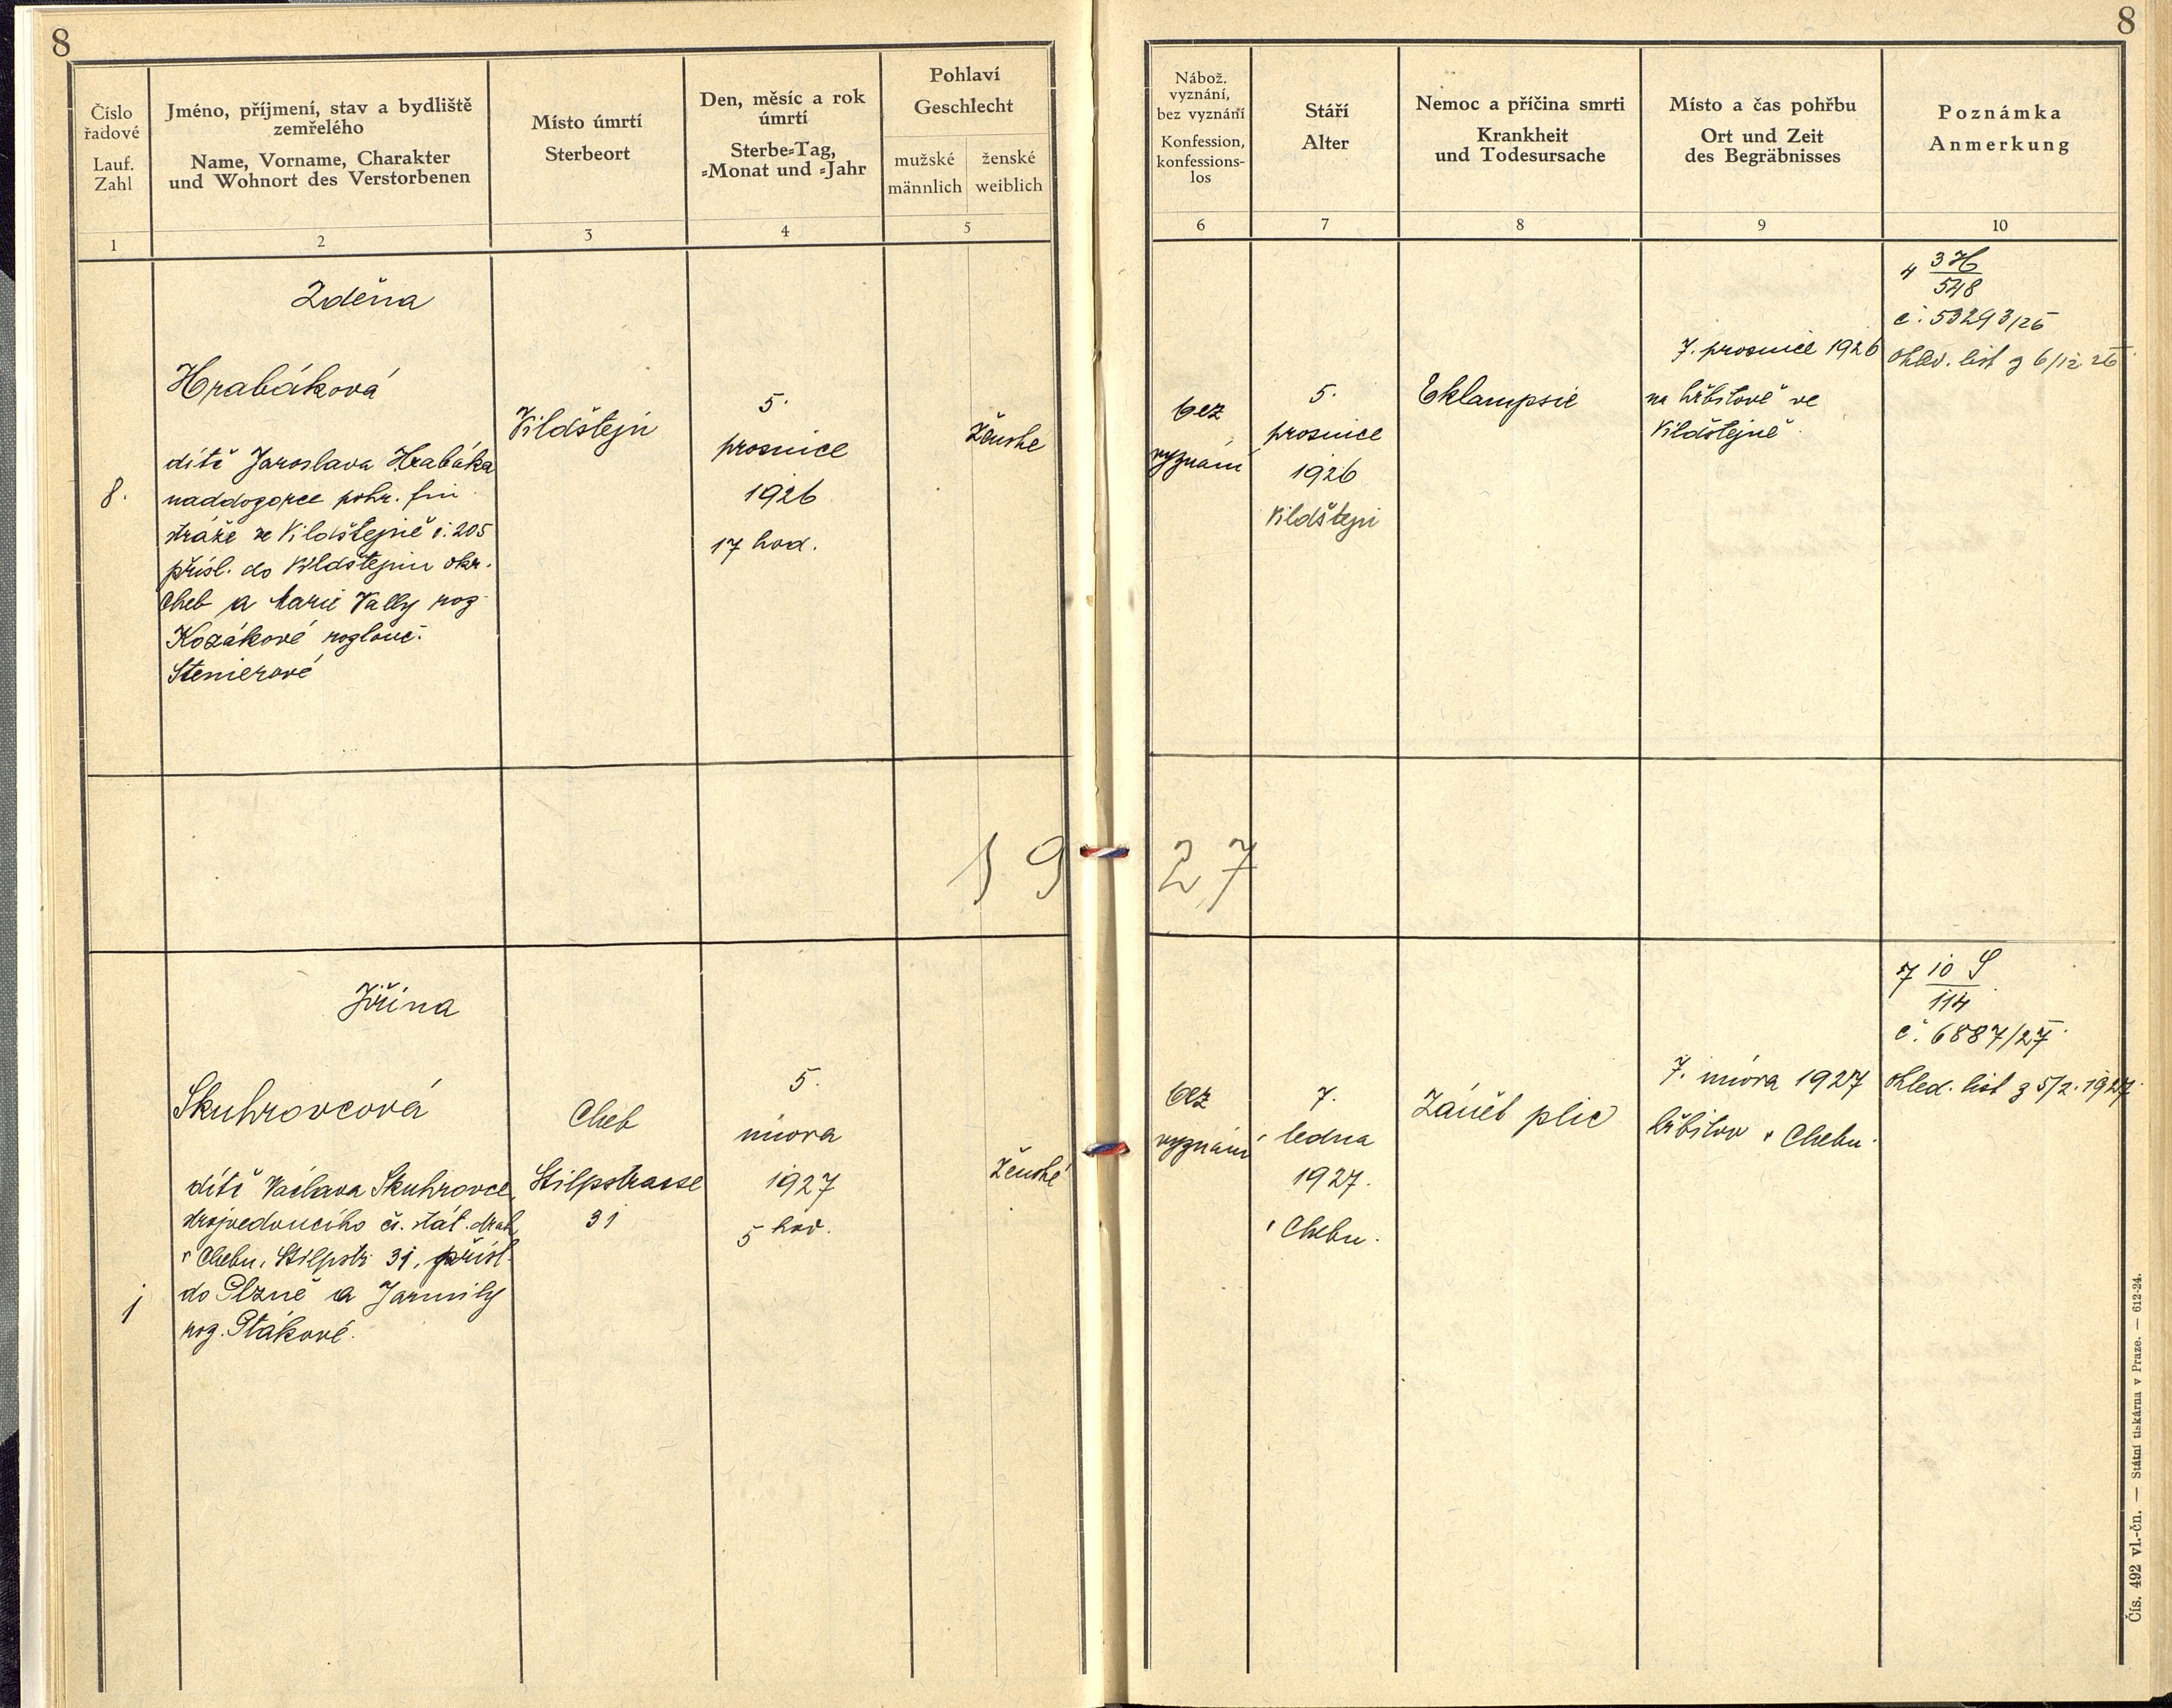 8
8
Číslo řadové
Lauf. Zahl
Jméno, příjmení, stav a bydliště zemřelého
Name, Vorname, Charakter und Wohnort des Verstorbenen
Místo úmrtí
Sterbeort
Den, měsíc a rok úmrtí
Sterbe-Tag, -Monat und -Jahr
Pohlaví
Geschlecht
mužské
männlich
ženské
weiblich
Nábož. vyznání, bez vyznání
Konfession, konfessions-los
Stáří
Alter
Nemoc a příčina smrti
Krankheit und Todesursache
Místo a čas pohřbu
Ort und Zeit des Begräbnisses
Poznámka
Anmerkung
1
2
3
4
5
6
7
8
9
10
8.
Zdeňa
Hrabáková
dítě Jaroslava Hrabáka
naddozorce pohr. fin.
stráže ve Vildštejně č. 205
přísl. do Vildštejna okr.
Cheb a Marie Vally roz.
Kozákové rozlouč.
Stenierové
Vildštejn
5.
prosince
1926
17 hod.
ženske
bez
vyznání
5.
prosince
1926
Vildštejn
Eklampsie
7. prosince 1926
na hřbitově ve
Vildštejně
4 3H
548
č. 53293/26
ohled. list z 6/12. 26
1927
1
Jiřina
Skuhrovcová
dítě Václava Skuhrovce,
strojvedoucího čs. stát. drah
v Chebu, Stilpstr. 31, přísl.
do Plzně a Jarmily
roz. Ptákové.
Cheb
Stilpstrasse
31
5.
února
1927
5 hod.
ženské
bez
vyznání
7.
ledna
1927.
v Chebu.
Zánět plic
7. února 1927
hřbitov v Chebu.
7 10 S
114
č. 6887/27.
ohled. list z 5/2. 1927.
Čís. 492 vl.-čn. — Státní tiskárna v Praze. — 612-24.